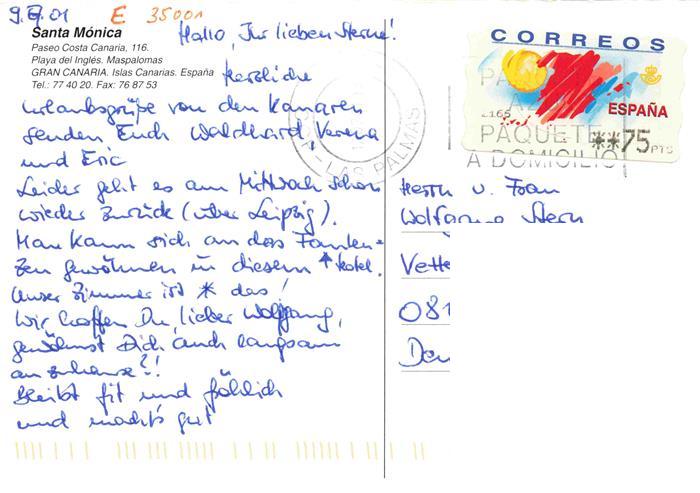 9.9.01
E 35001
Hallo, Ihr lieben Sterne!
Santa Mónica
Paseo Costa Canaria, 116.
Playa del Inglés. Maspalomas
GRAN CANARIA. Islas Canarias. España
Tel.: 77 40 20. Fax: 76 87 53
Herzliche
Urlaubsgrüße von den Kanaren
senden Euch Waldtraud, Verena
und Eric
Leider geht es am Mittwoch schon
wieder zurück (über Leipzig).
Man kann sich an das Faulen-
zen gewöhnen in diesem Hotel.
Unser Zimmer ist * das!
Wir hoffen Du, lieber Wolfgang,
gewöhnst Dich auch langsam
an zuhause?!
Bleibt fit und fröhlich
und macht's gut
CORREOS
ESPAÑA
2165
**75 PTS
PAQUETE
A DOMICILIO
LAS PALMAS
Herrn u. Frau
Wolfgang Stern
Vette
081
Deu